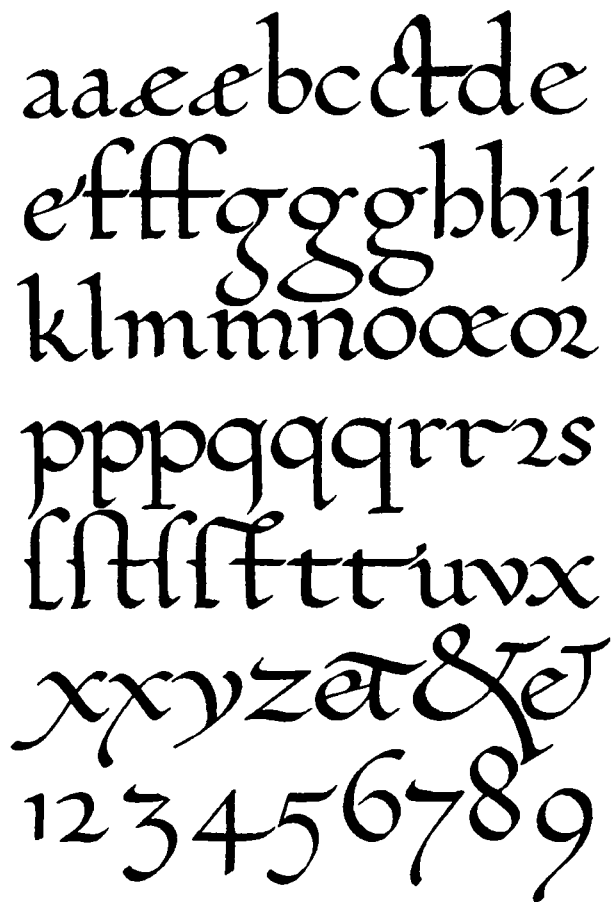 aaææbccctde
efffggghhij
klmmnoœoꝛ
pppqqqrrꝛs
ſſtſſtttuvx
xxyzet&et
123456789